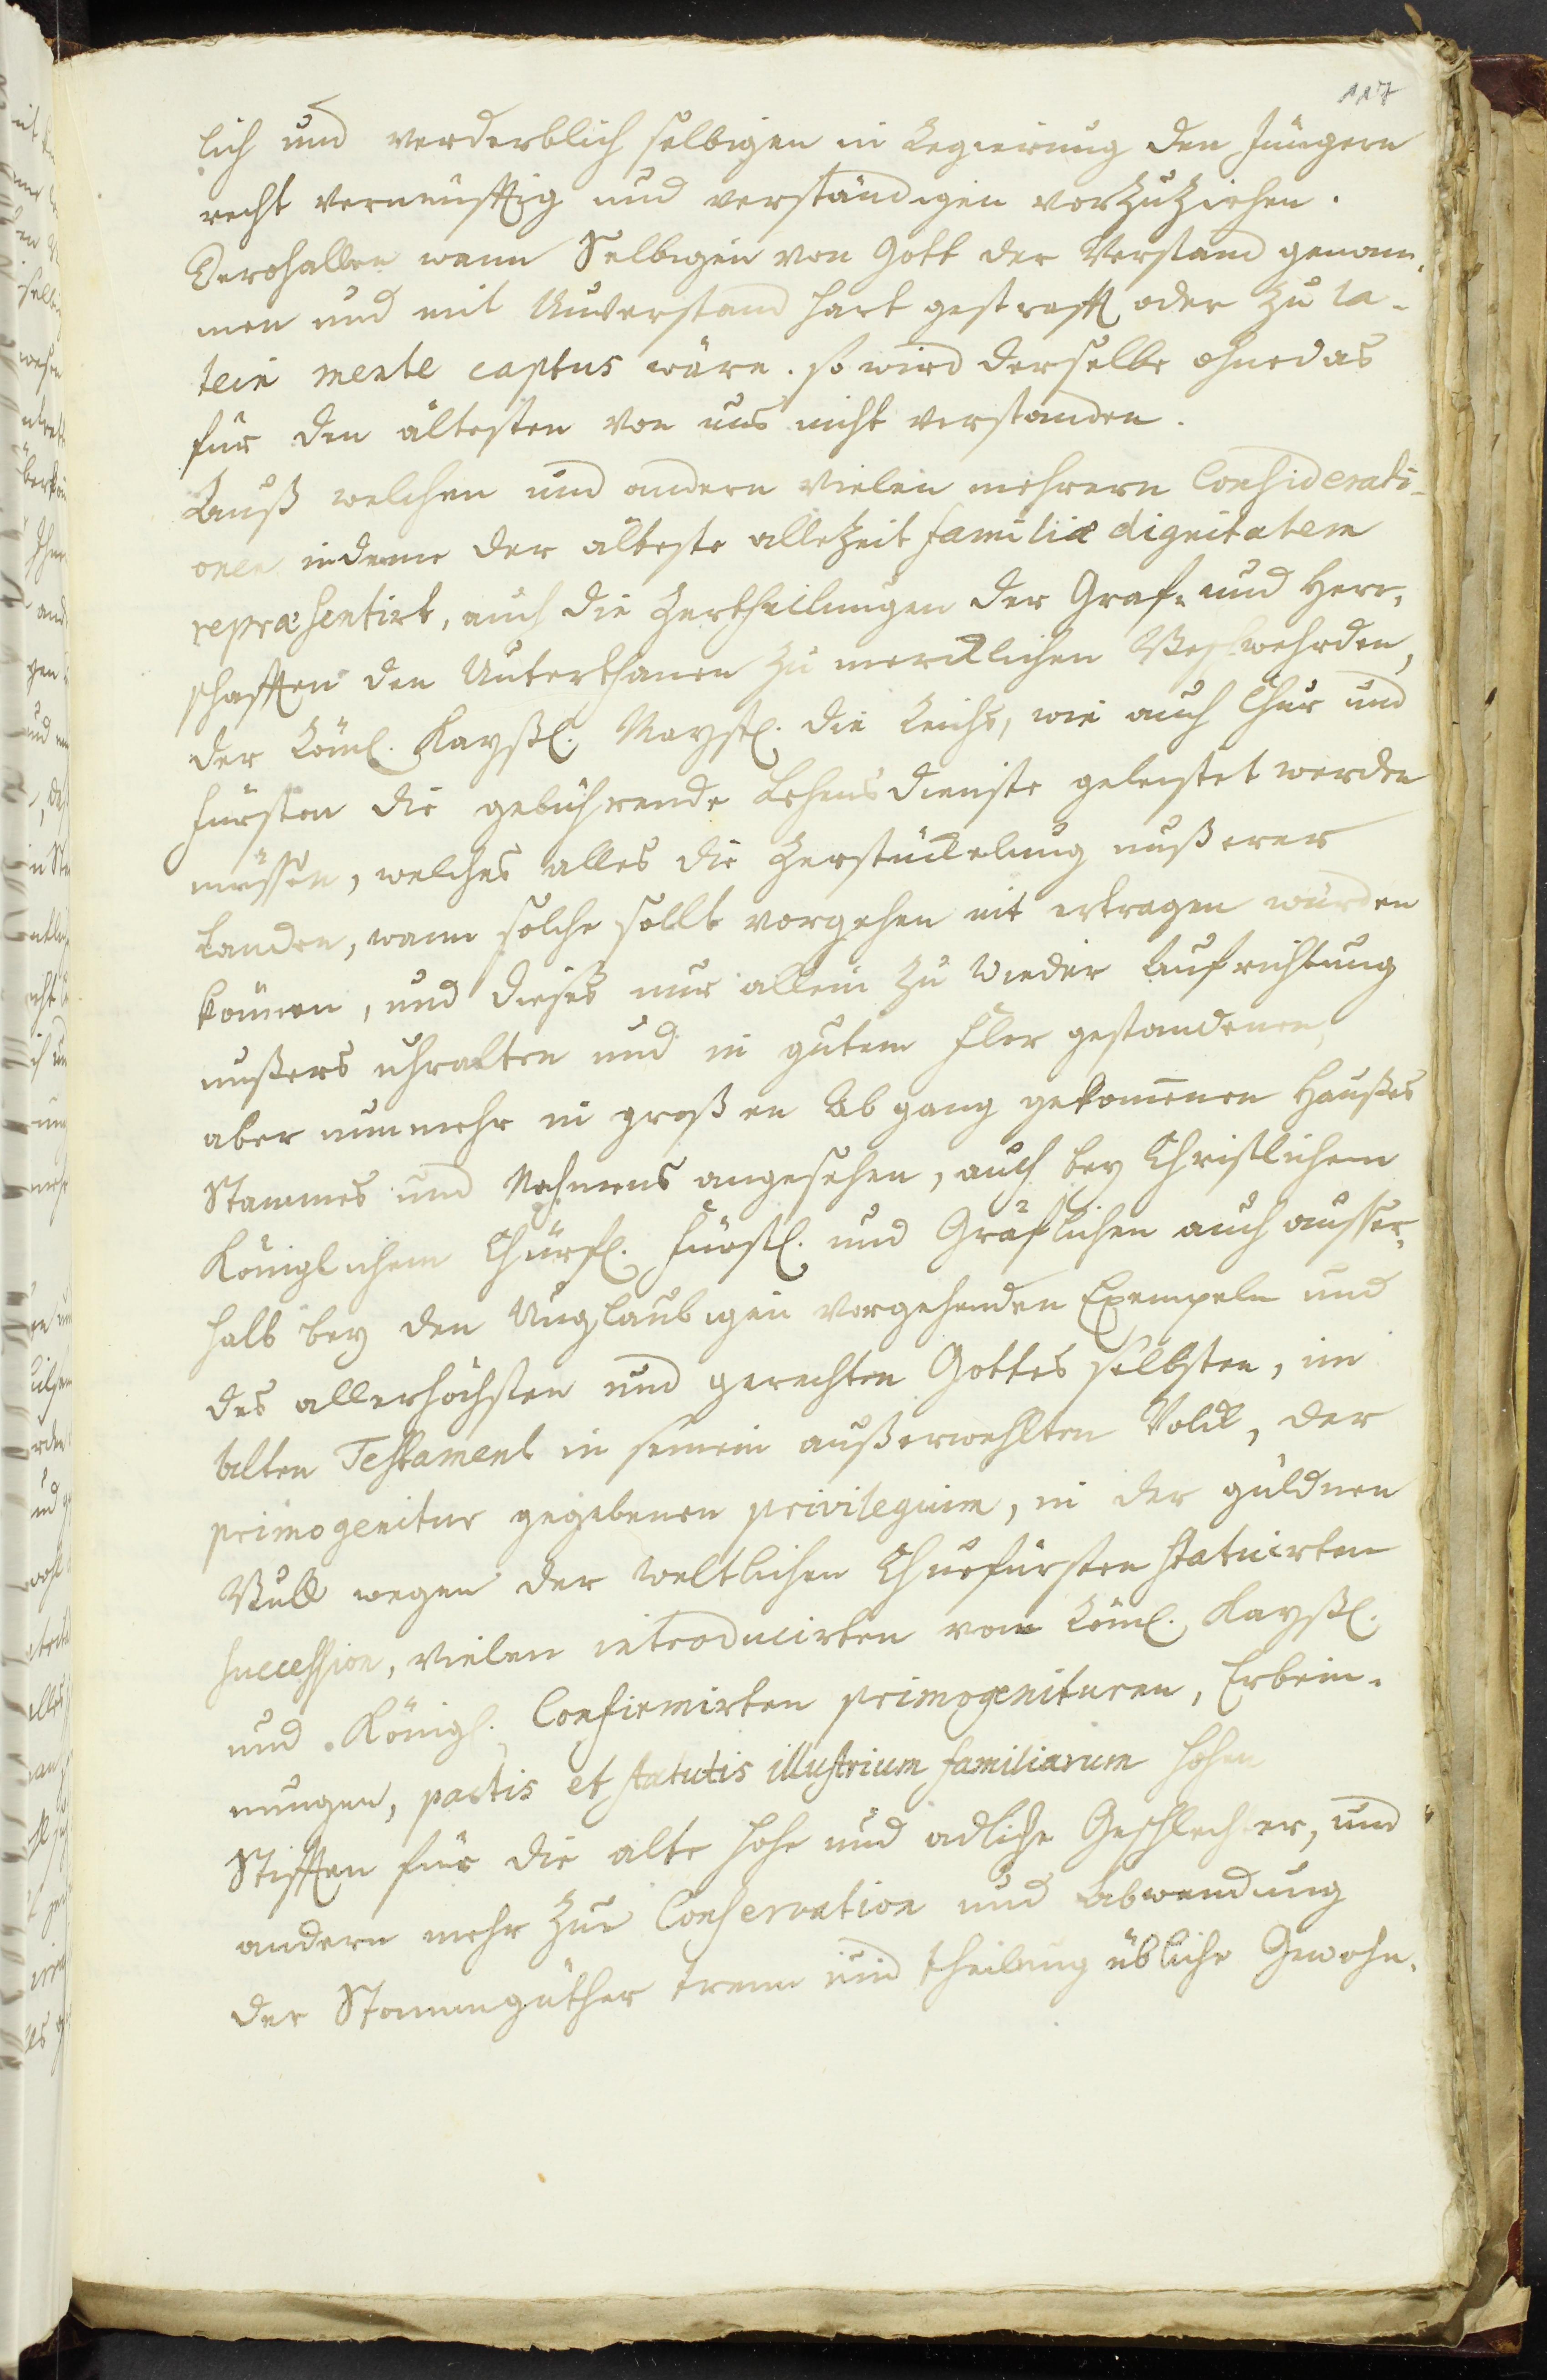 117
lich und verderblich selbigen in Regierung den Jüngern
recht vernünfftig und verständigen vorzuziehen.
Derohalben wann Selbigen von Gott der Verstand genom-
men und mit Unverstand hart gestrafft oder zu la-
tein mente captus wäre. so wird derselbe ohnedas
für den ältesten von uns nicht verstanden.
Auß welchen und andern vielen mehrern Considerati-
onen indeme der älteste allezeit familiæ dignitatem
repræsentirt, auch die Zertheilungen der Graf- und Herr-
schafften den Unterthanen zu mercklichen Beschwehrden,
der Röml. Kayßl. Mayst. die Reichs, wie auch Chur und
Fürsten die gebührende Lehensdienste geleistet werden
müssen, welches alles die Zerstückelung unßerer
Landen, wann solche sollt vorgehen nit ertragen würden
können, und dieses nur allein zu wieder Aufrichtung
unßers uhralten und in gutem Flor gestandenen,
aber nunmehr in großen Abgang gekommenen Haußes
Stammes und Nahmens angesehen, auch bey Christlichem
Königlichem Churfl. Fürstl. und Gräflichen auch ausser-
halb bey den Unglaubigen vorgehenden Exempeln und
des allerhöchsten und gerechten Gottes selbsten, im
alten Testament in seinem außerwehlten Volck, der
primogenitur gegebenen privilegium, in der guldnen
Bull wegen der Weltlichen Churfürsten statuirten
succession, vielen introducirten vom Röml. Kayßl.
und Königl. Confirmirten primogenituren, Erbein-
nungen, pactis et statutis illustrium familiarum hohen
Stifften für die alte hohe und adliche Geschlechter, und
andern mehr zur Conservation und Abwendung
der Stammgüther trenn und theilung übliche Gewohn-